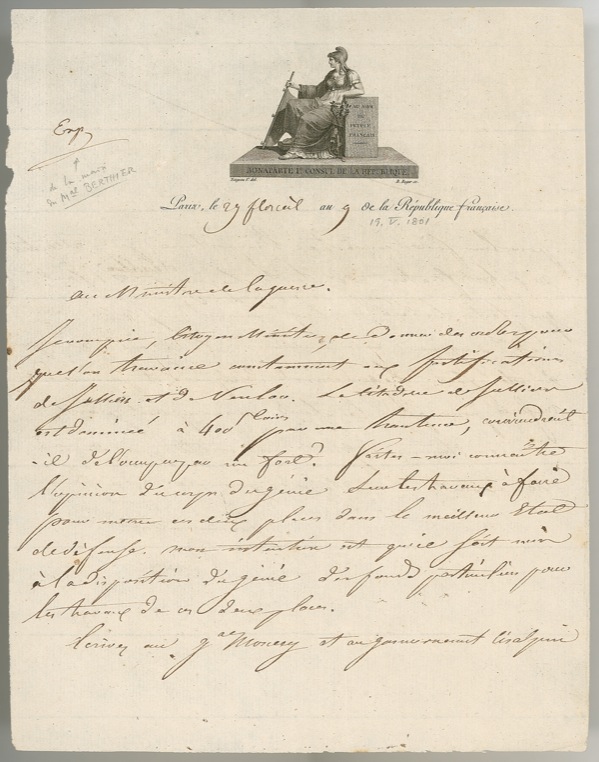 Exp.
de la main
du Mal BERTHIER
AU NOM
DU
PEUPLE
FRANÇAIS
BONAPARTE Ier CONSUL DE LA REPUBLIQUE.
B. Roger sc.
Paris, le 29 floréal an 9 de la République française.
19. V. 1801
au Ministre de la guerre.
Je vous prie, Citoyen Ministre, de donner des ordres pour
que l'on travaille constamment aux fortifications
de et de . La Citadelle de
est dominée à 400 toises par une hauteur, conviendroit
-il de l'occuper par un fort? Faites-moi connaître
l'opinion du corps du génie sur les travaux à faire
pour mettre ces deux places dans le meilleur Etat
de défense. mon intention est qu'il soit mis
à la disposition du génie des fonds particuliers pour
les travaux de ces deux places.
Ecrivez au gal Moncey et au gouvernement Cisalpin